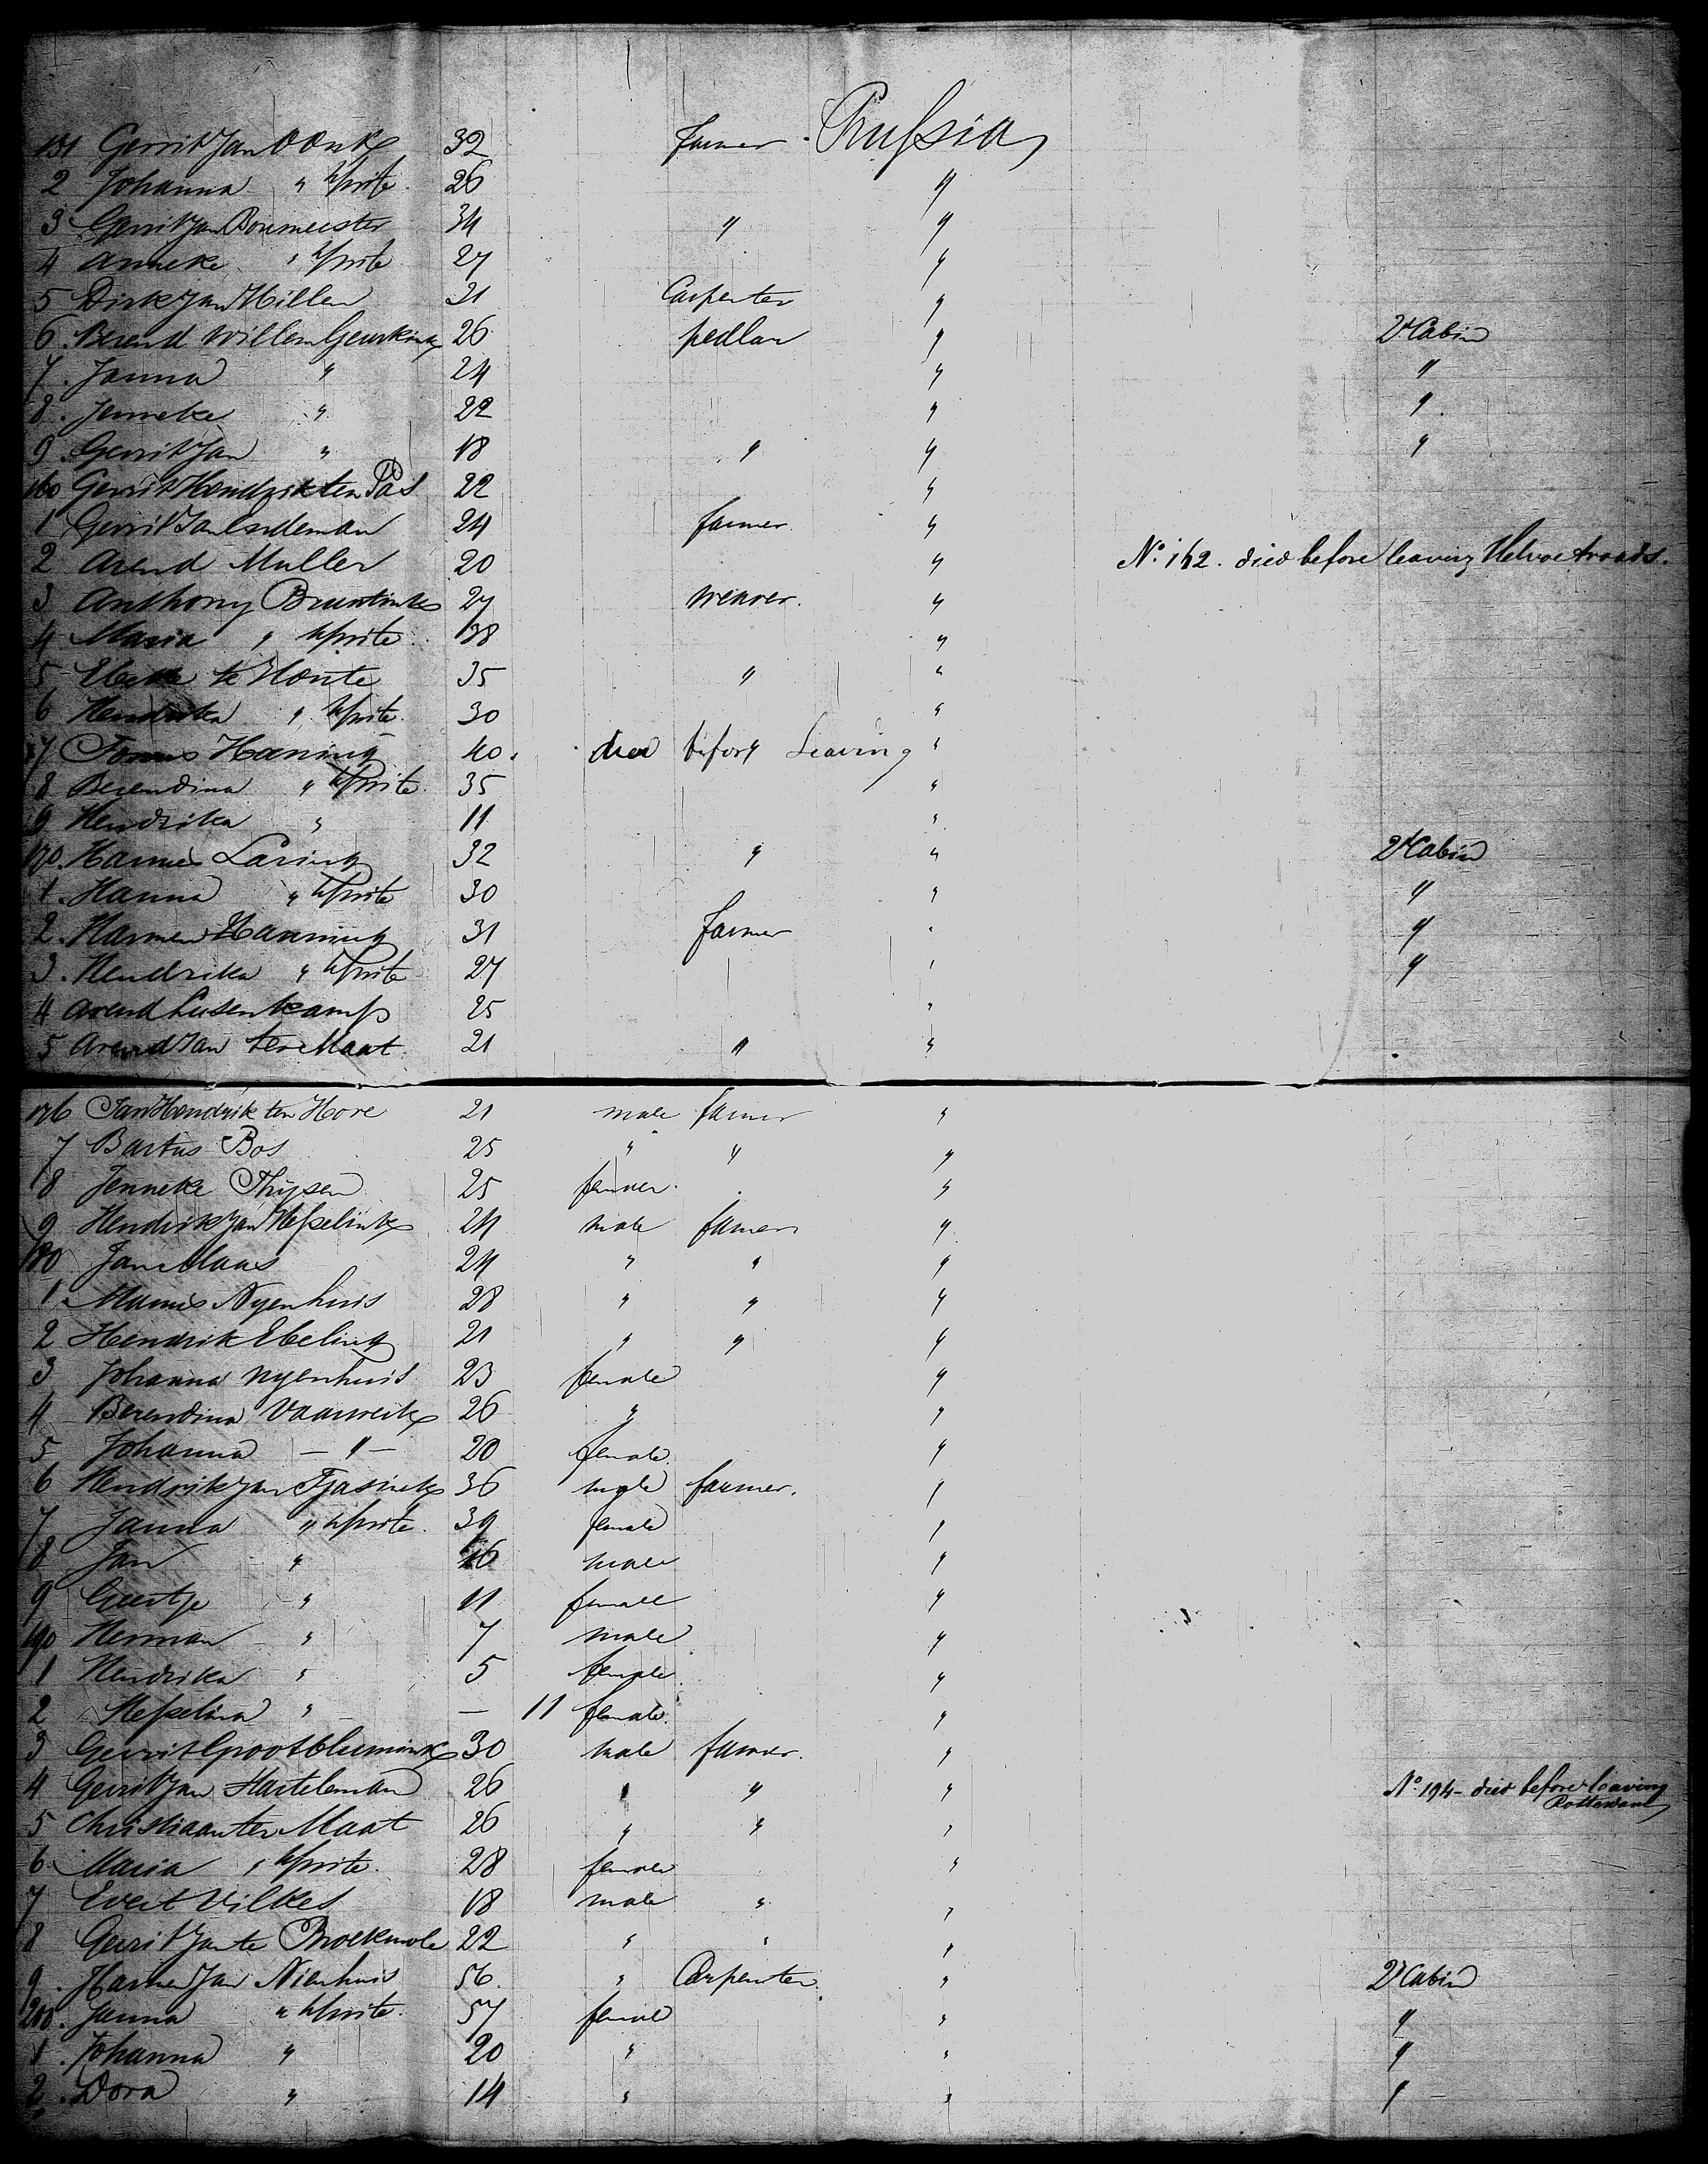 151 Gerrit Jan Oonk 32 farmer Prussia
2 Johanna " wife 26 "
3 Gerrit Jan Boumeester 34 " "
4 Anneke " wife 27 "
5 Dirk Jan Hillen 31 Carpenter "
6 Berend Willem Geurkink 26 pedlar " 2d Cabin
7 Janna " 24 " "
8 Jenneke " 22 " "
9 Gerrit Jan " 18 " " "
160 Gerrit Hendrik ten Pas 22 "
1 Gerrit Jan 24 farmer "
2 Arend Muller 20 " No. 162. died before leaving Helvoet roads.
3 Anthony Bruntink 27 weaver. "
4 Maria " wife 38 "
5 te Honte 35 " "
6 Hendrika " wife 30 "
7 Haning 40. died before Leaving "
8 Berendina " wife 35 "
9 Hendrika " 11 "
170. Harmen Laring 32 " " 2d Cabin
1. Hanna " wife 30 " "
2. Harmen Hanning 31 farmer " "
3. Hendrika " wife 27 " "
4 Arend Lusenkamp 25 "
5 Arend Jan ter Maat 21 " "
176 Jan Hendrik ten Hove 21 male farmer "
7 Bartus Bos 25 " " "
8 Jenneke Thysen 25 female "
9 Hendrik Jan Heſselink 24 male farmer "
180 Jan Maas 24 " " "
1 Mannes Nyenhuis 28 " " "
2 Hendrik Ebeling 21 " " "
3 Johanna Nyenhuis 23 female "
4 Berendina Vaarwerk 26 " "
5 Johanna — " — 20 female "
6 Hendrik Jan Tjasink 36 male farmer. "
7 Janna " wife 39 female "
8 Jan " 16 male "
9 Geertje " 11 female "
190 Herman " 7 male "
1 Hendrika " 5 female "
2 Heſselina " — 11 female "
3 Gerrit Groot bluemink 30 male farmer. "
4 Gerrit Jan Harteleman 26 " " " No. 194 - died before leaving Rotterdam
5 Christiaan ter Maat 26 " " "
6 Maria " wife 28 female "
7 Evert Wilkes 18 male " "
8 Gerrit Jan te Broekmole 22 " " "
9. Harmen Jan Nienhuis 56. " Carpenter " 2d Cabin
200. Janna " wife 57 female " "
1. Johanna " 20 " " "
2. Dora " 14 " " "